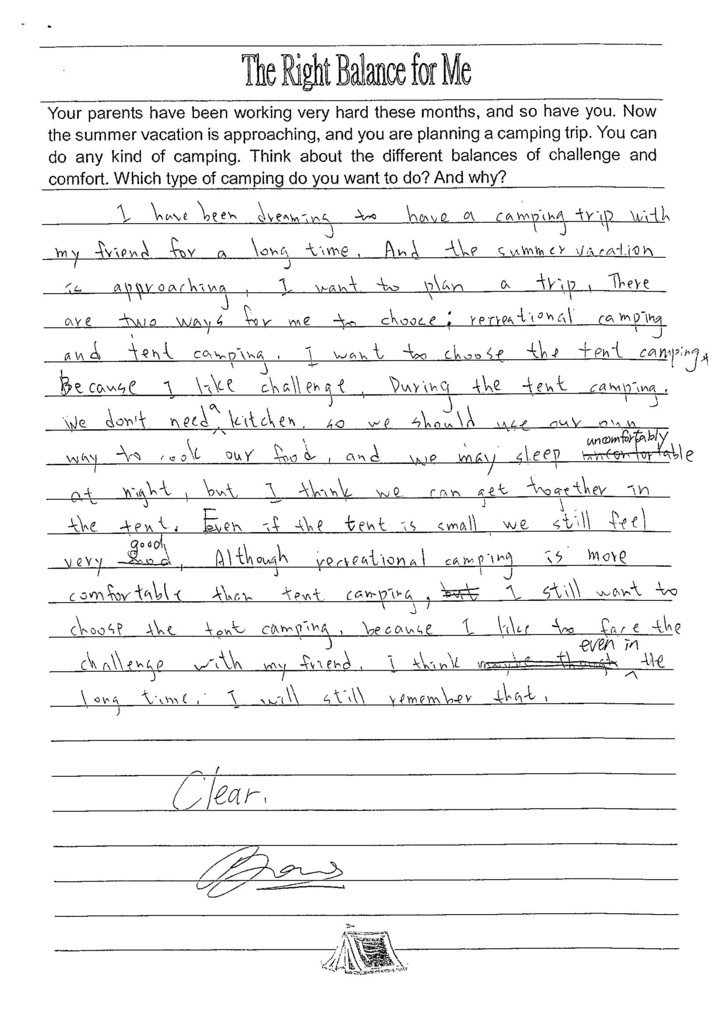 The Right Balance for Me
Your parents have been working very hard these months, and so have you. Now
the summer vacation is approaching, and you are planning a camping trip. You can
do any kind of camping. Think about the different balances of challenge and
comfort. Which type of camping do you want to do? And why?
I have been dreaming to have a camping trip with
my friend for a long time. And the summer vacation
is approaching, I want to plan a trip, There
are two ways for me to chooce: recreational camping
and tent camping. I want to choose the tent camping,
Because I like challenge, During the tent camping.
We don't need a kitchen, so we should use our own
way to cook our food, and we may sleep uncomfortably
at night, but I think we can get together in
the tent. Even if the tent is small, we still feel
very good, Although recreational camping is more
comfortable than tent camping, but I still want to
choose the tent camping, because I like to face the
challenge with my friend, I think even in the
long time. I will still remember that.
Clear.